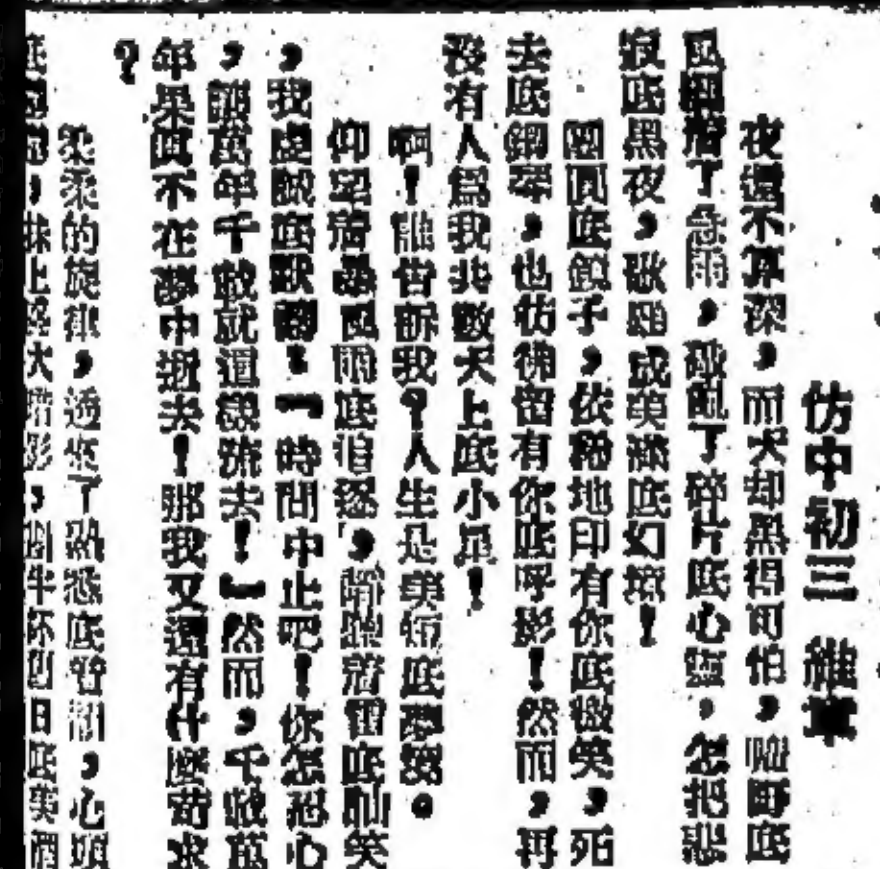 仿中初三 維
夜還不算深，而天却黑得可怕，曠野底
風圈着了急雨，破亂了碎片底心靈，怎把悲
哀底黑夜，砍成美底幻境！
圓圓底鏡子，依稀地印有你底微笑，死
去底鋼琴，也彷彿留有你底呼影！然而，再
沒有人爲我共數天上底小星！
啊！誰告訴我？人生是美短底夢。
仰望着暴風雨底追逐，聽着雷底訕笑
，我虛底歌：『時間中止吧！你怎忍心
，萬年千載就這樣流去！』然而，千載萬
年果真不在夢中逝去！那我又還有什麼苛求
？
柔柔的旋律，透來了熟悉底音韻，心頭
，抹上大暗影，半杯日底美酒